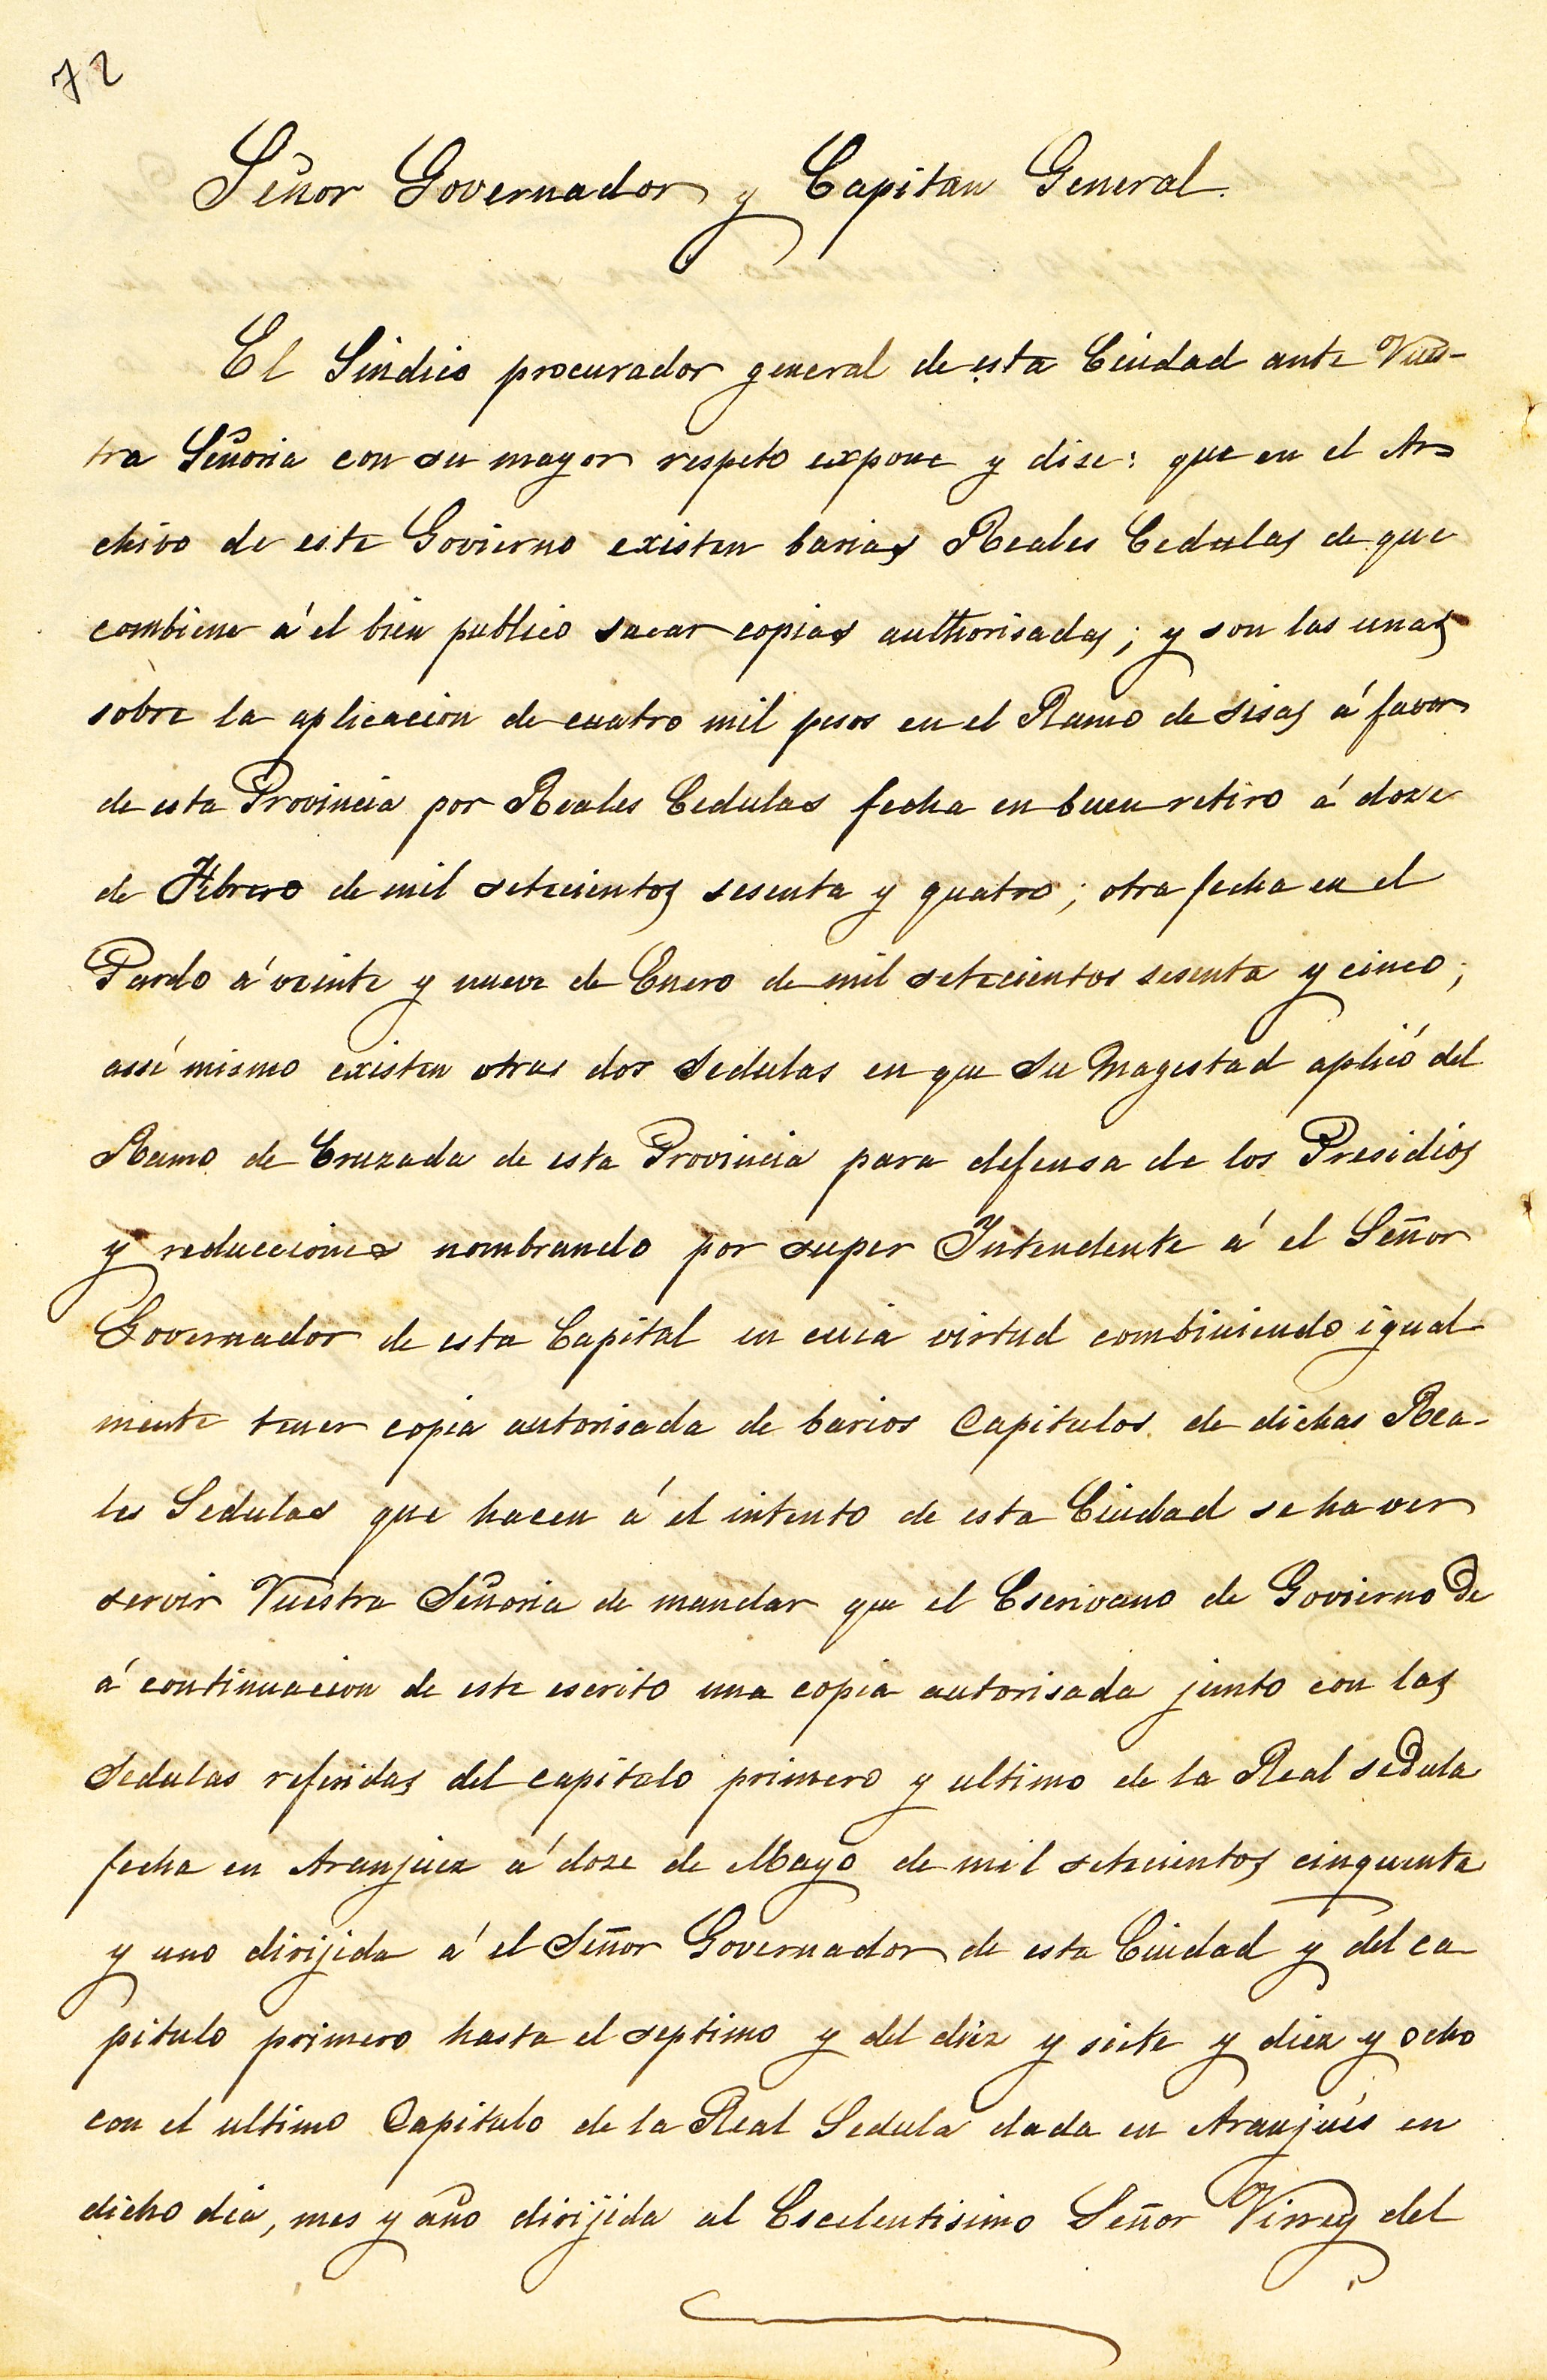 72
Señor Governador y Capitan General.
El Sindico procurador general de esta Ciudad ante Vues-
tra Señoria con su mayor respeto expone y dise: que en el Ar
chivo de este Govierno existen barias Reales Cedulas de que
combiene á el bien publico sacar copias authorisadas; y son las unas
sobre la aplicacion de cuatro mil pesos en el Ramo de sisas á favor
de esta Provincia por Reales Cedulas fecha en buen retiro á doze
de Febrero de mil setecientos sesenta y quatro; otra fecha en el
Pardo á veinte y nueve de Enero de mil setecientos sesenta y cinco;
assi mismo existen otras dos Sedulas en que Su Magestad aplicó del
Ramo de Cruzada de esta Provincia para defensa de los Presidios
y reducciones nombrando por super Intendente á el Señor
Governador de esta Capital en cuia virtud combiniendo igual
mente tener copia autorisada de barios Capitulos de dichas Rea-
les Sedulas que hacen á el intento de esta Ciudad se ha ver
servir Vuestra Señoria de mandar que el Escrivano de Govierno De
á continuacion de este escrito una copia autorisada junto con las
Sedulas referidas del capitulo primero y ultimo de la Real seDula
fecha en Aranjuez á doze de Mayo de mil setecientos cinquenta
y uno dirijida á el Señor Governador de esta Ciudad y del ca
pitulo primero hasta el septimo y del diez y siete y diez y ocho
con el ultimo Capitulo de la Real Sedula dada en Aranjués en
dicho dia, mes y año dirijida al Escelentisimo Señor Virrey del